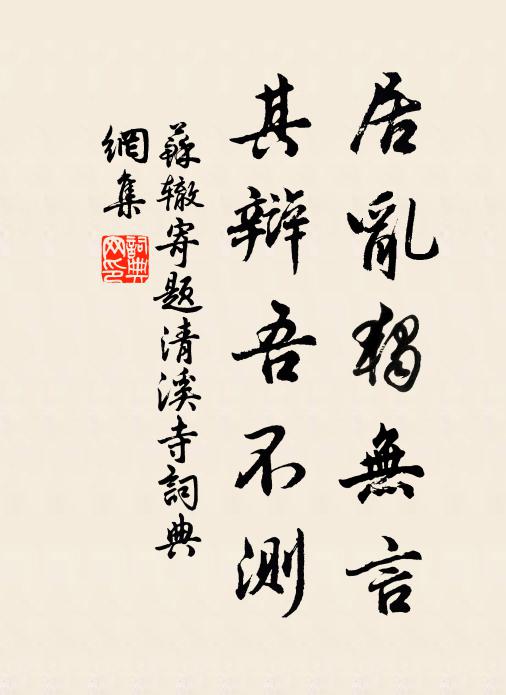 居亂獨無言
其辯吾不測
蘇辙寄题清溪寺詞典
網集
詞典網印